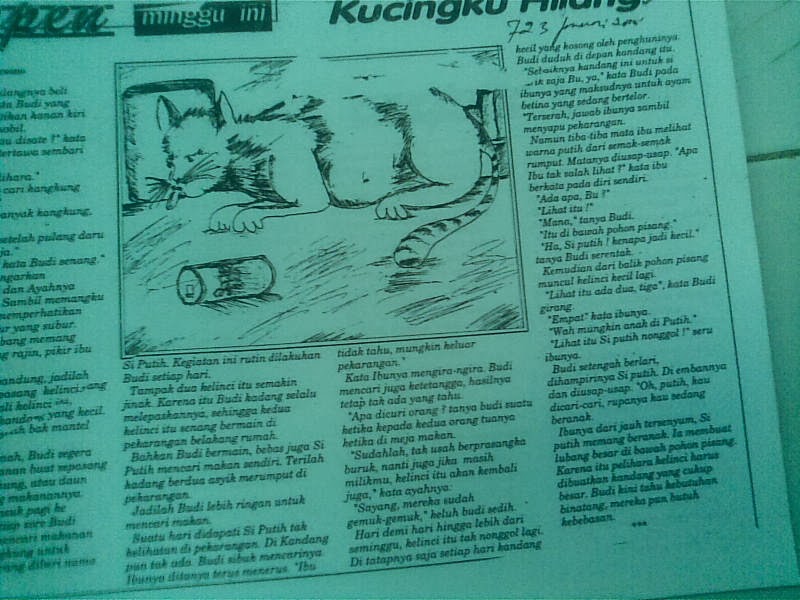 pen minggu ini
Kucingku Hilang
langnya beli
Budi yang
kanan kiri
mobil.
disate ?" kata
tertawa sembari
cari kangkung
anyak kangkung,
setelah pulang dari
ja."
kata Budi senang."
ngarkan
dan Ayahnya
Sambil memangku
memperhatikan
ur yang subur.
bang memang
rajin, pikir ibu
andung, jadilah
pasang kelinci
kelinci
yang kecil.
bak mantel
ah, Budi segera
sepasang
atau daun
makanannya.
pagi ke
sore Budi
mencari makanan
untuk
diberi nama
Si Putih. Kegiatan ini rutin dilakukan
Budi setiap hari.
Tampak dua kelinci itu semakin
jinak. Karena itu Budi kadang selalu
melepaskannya, sehingga kedua
kelinci itu senang bermain di
pekarangan belakang rumah.
Bahkan Budi bermain, bebas juga Si
Putih mencari makan sendiri. Terilah
kadang berdua asyik merumput di
pekarangan.
Jadilah Budi lebih ringan untuk
mencari makan.
Suatu hari didapati Si Putih tak
kelihatan di pekarangan. Di Kandang
pun tak ada. Budi sibuk mencarinya.
Ibunya ditanya terus menerus. "Ibu
tidak tahu, mungkin keluar
pekarangan."
Kata Ibunya mengira-ngira. Budi
mencari juga ketetangga, hasilnya
tetap tak ada yang tahu.
"Apa dicuri orang ? tanya budi suatu
ketika kepada kedua orang tuanya
ketika di meja makan.
"Sudahlah, tak usah berprasangka
buruk, nanti juga jika masih
milikmu, kelinci itu akan kembali
juga," kata ayahnya.
"Sayang, mereka sudah
gemuk-gemuk," keluh budi sedih.
Hari demi hari hingga lebih dari
seminggu, kelinci itu tak nonggol lagi.
Di tatapnya saja setiap hari kandang
kecil yang kosong oleh penghuninya.
Budi duduk di depan kandang itu.
"Sebaiknya kandang ini untuk si
saja Bu, ya," kata Budi pada
ibunya yang maksudnya untuk ayam
betina yang sedang bertelor.
"Terserah, jawab ibunya sambil
menyapu pekarangan.
Namun tiba-tiba mata ibu melihat
warna putih dari semak-semak
rumput. Matanya diusap-usap. "Apa
Ibu tak salah lihat ?" kata ibu
berkata pada diri sendiri.
"Ada apa, Bu ?"
"Lihat itu !"
"Mana," tanya Budi.
"Itu di bawah pohon pisang."
"Ha, Si putih ! kenapa jadi kecil."
tanya Budi serentak.
Kemudian dari balik pohon pisang
muncul kelinci kecil lagi.
"Lihat itu ada dua, tiga", kata Budi
girang.
"Empat" kata ibunya.
"Wah mungkin anak di Putih."
"Lihat itu Si putih nonggol !" seru
ibunya.
Budi setengah berlari,
dihampirinya Si putih. Di embannya
dan diusap-usap. "Oh, putih, kau
dicari-cari, rupanya kau sedang
beranak.
Ibunya dari jauh tersenyum, Si
putih memang beranak. Ia membuat
lubang besar di bawah pohon pisang.
Karena itu pelihara kelinci harus
dibuatkan kandang yang cukup
besar. Budi kini tahu kebutuhan
binatang, mereka pun butuh
kebebasan.
***